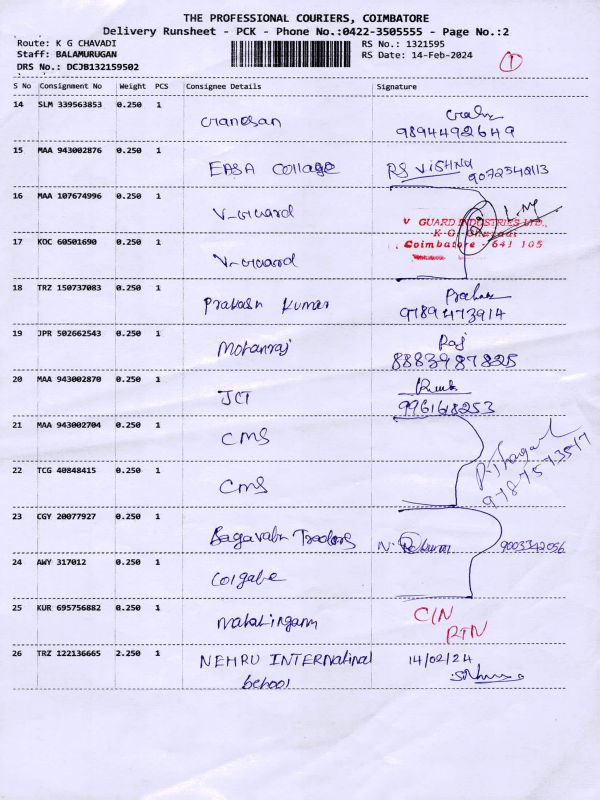 THE PROFESSIONAL COURIERS, COIMBATORE
Delivery Runsheet - PCK - Phone No.:0422-3505555 - Page No.:2
Route: K G CHAVADI
RS No.: 1321595
Staff: BALAMURUGAN
RS Date: 14-Feb-2024
DRS No.: DCJB132159502
1
S No Consignment No Weight PCS Consignee Details Signature
14 SLM 339563853 0.250 1
9894492649
15 MAA 943002876 0.250 1 EASA College RS VISHNU
16 MAA 107674996 0.250 1 V-Guard
V GUARD INDUSTRIES LTD.,
17 KOC 60501690 0.250 1 V-Guard
Coimbatore - 641 105
18 TRZ 150737083 0.250 1 Prakash Kumar
9789473914
19 JPR 502662543 0.250 1 Mohanraj Raj
8883987825
20 MAA 943002870 0.250 1 JCT
21 MAA 943002704 0.250 1 CMS
22 TCG 40848415 0.250 1 CMS
23 CGY 20077927 0.250 1 Traders 9003342056
24 AWY 317012 0.250 1 Colgate
25 KUR 695756882 0.250 1 Mahalingam C/N
RTN
26 TRZ 122136665 2.250 1 NEHRU INTERnational 14/02/24
School